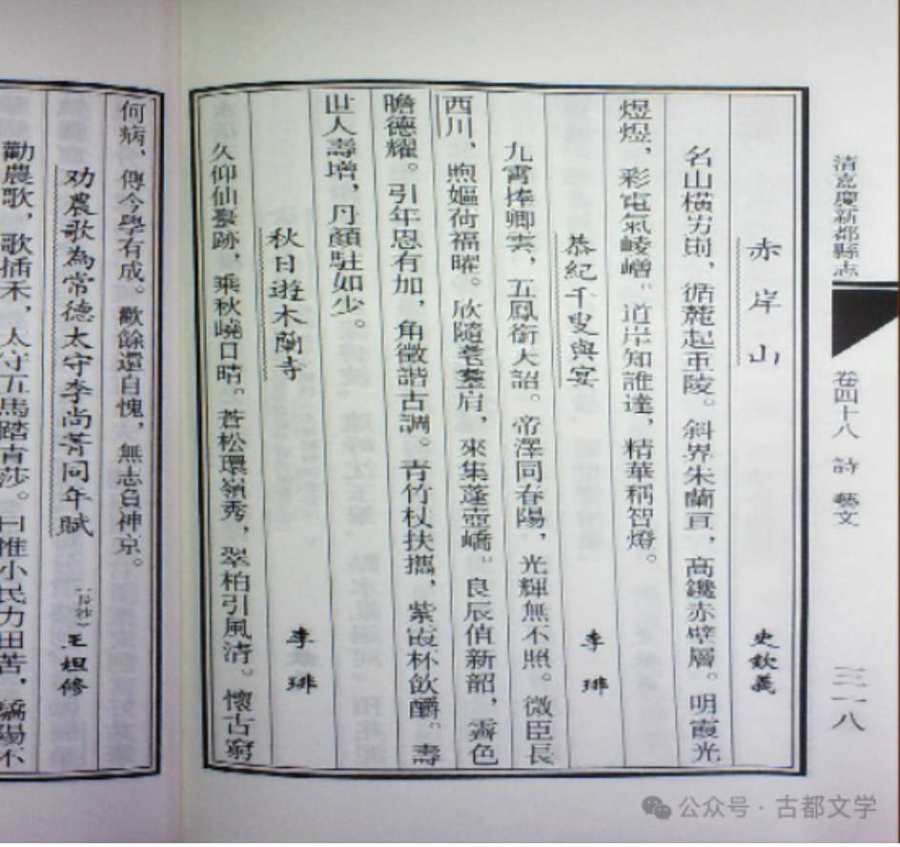 清嘉慶新都縣志
卷四十八 詩 藝文
三一八
赤岸山
史欽義
名山橫屴則，循麓起重陵。斜界朱蘭亘，高鑱赤壁層。明霞光
煜煜，彩電氣崚嶒。道岸知誰達，精華稱智燈。
恭紀千叟與宴
李琲
九霄捧卿雲，五鳳銜大詔。帝澤同春陽，光輝無不照。微臣長
西川，煦嫗荷福曜。欣隨耄耋肩，來集蓬壺嶠。良辰值新韶，霽色
瞻德耀。引年恩有加，角徵諧古調。青竹杖扶攜，紫霞杯飲釂。壽
世人壽增，丹顏駐如少。
秋日遊木蘭寺
李琲
久仰仙靈跡，乘秋曉日晴。蒼松環嶺秀，翠柏引風清。懷古窮
何病，傳今學有成。歉餘還自愧，無志負神京。
劝農歌為常德太守李尚菁同年賦
（長沙）王姮修
勸農歌，歌插禾，太守五馬踏青莎。曰惟小民力田苦，驕陽不
公众号 · 古都文学